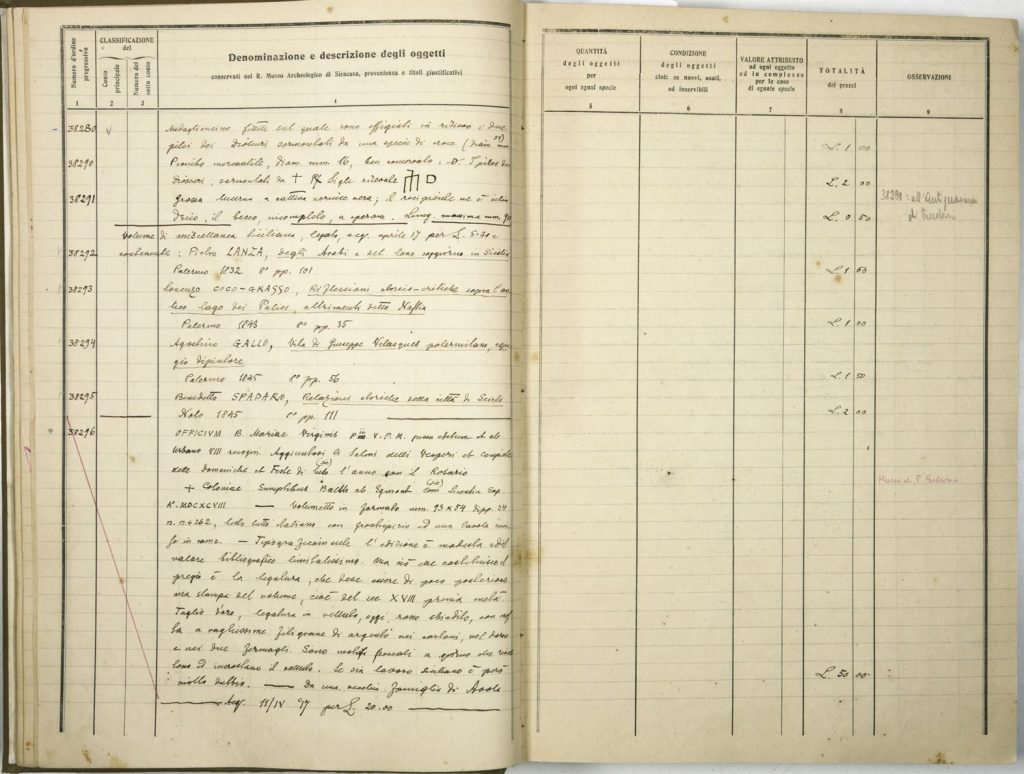 Numero d'ordine progressivo
CLASSIFICAZIONE del
Conto principale
Numero del sotto conto
Denominazione e descrizione degli oggetti
conservati nel R. Museo Archeologico di Siracusa, provenienza e titoli giustificativi
1 2 3 4
QUANTITÀ degli oggetti per ogni egual specie
CONDIZIONE degli oggetti cioè: se nuovi, usati, od inservibili
VALORE ATTRIBUITO ad ogni oggetto ed in complesso per le cose di eguale specie
TOTALITÀ dei prezzi
OSSERVAZIONI
5 6 7 8 9
38280 V fittile sul quale sono effigiati in rilievo i due
pilei dei Dioscuri sormontati da una specie di croce (diam. mm.
L. 1 00
38290 Piombo mercantile, diam. mm. 16, ben conservato.
dioscuri, sormontati da + sigle
L. 2 00
38291 grossa lucerna a cattiva vernice nera; il recipiente ne è
il becco, incompleto, a Lung. massima mm. 90
L. 0 50
38291: all'Antiquarium di
Volume di miscellanea siciliana, legato, acq. aprile 17 per L. 5.50 e
38292 contenente: Pietro LANZA, degli Arabi e del loro soggiorno in Sicilia
Palermo 1832 8° pp. 101
L. 1 50
38293 Lorenzo COCO-GRASSO, Riflessioni storico-critiche sopra l'an-
tico lago dei Palici, altrimenti detto Naftia
Palermo 1843 8° pp. 35
L. 1 00
38294 Agostino GALLO, Vita di Giuseppe Velasques palermitano, egre-
gio dipintore
Palermo 1845 8° pp. 56
L. 1 50
38295 Benedetto SPADARO, Relazioni storiche della città di Scicli
Noto 1845 8° pp. 111
L. 2 00
38296 OFFICIVM B. Mariae Virginis V. P. M.
Urbano VIII Aggiuntovi li Salmi delli Vesperi et compieta
delle Domeniche et Feste di tutto l'anno con il Rosario
+ Coloniae Sumptibus Balth ab Egmont
MDCXCVIII — Volumetto in formato mm. 93 x 54 di pp. 24
n. n + 262, testo tutto italiano con frontespizio ed una tavola
in rame. — l'edizione è modesta ed il
valore bibliografico limitatissimo. Ma ciò che costituisce il
pregio è la legatura, che deve essere di poco posteriore
alla stampa del volume, cioè del sec XVIII prima metà
Taglio d'oro, legatura in velluto, oggi rosso sbiadito, con
a vaghissime filigrane di argento nei cartoni, nel dorso
e nei due fermagli. Sono motivi floreali a giorno che
ed incrostano il velluto. Se sia lavoro siciliano è però
molto dubbio. — Da una vecchia famiglia di Avola
Acq. 11/IV 17 per L. 20.00
L. 50 00